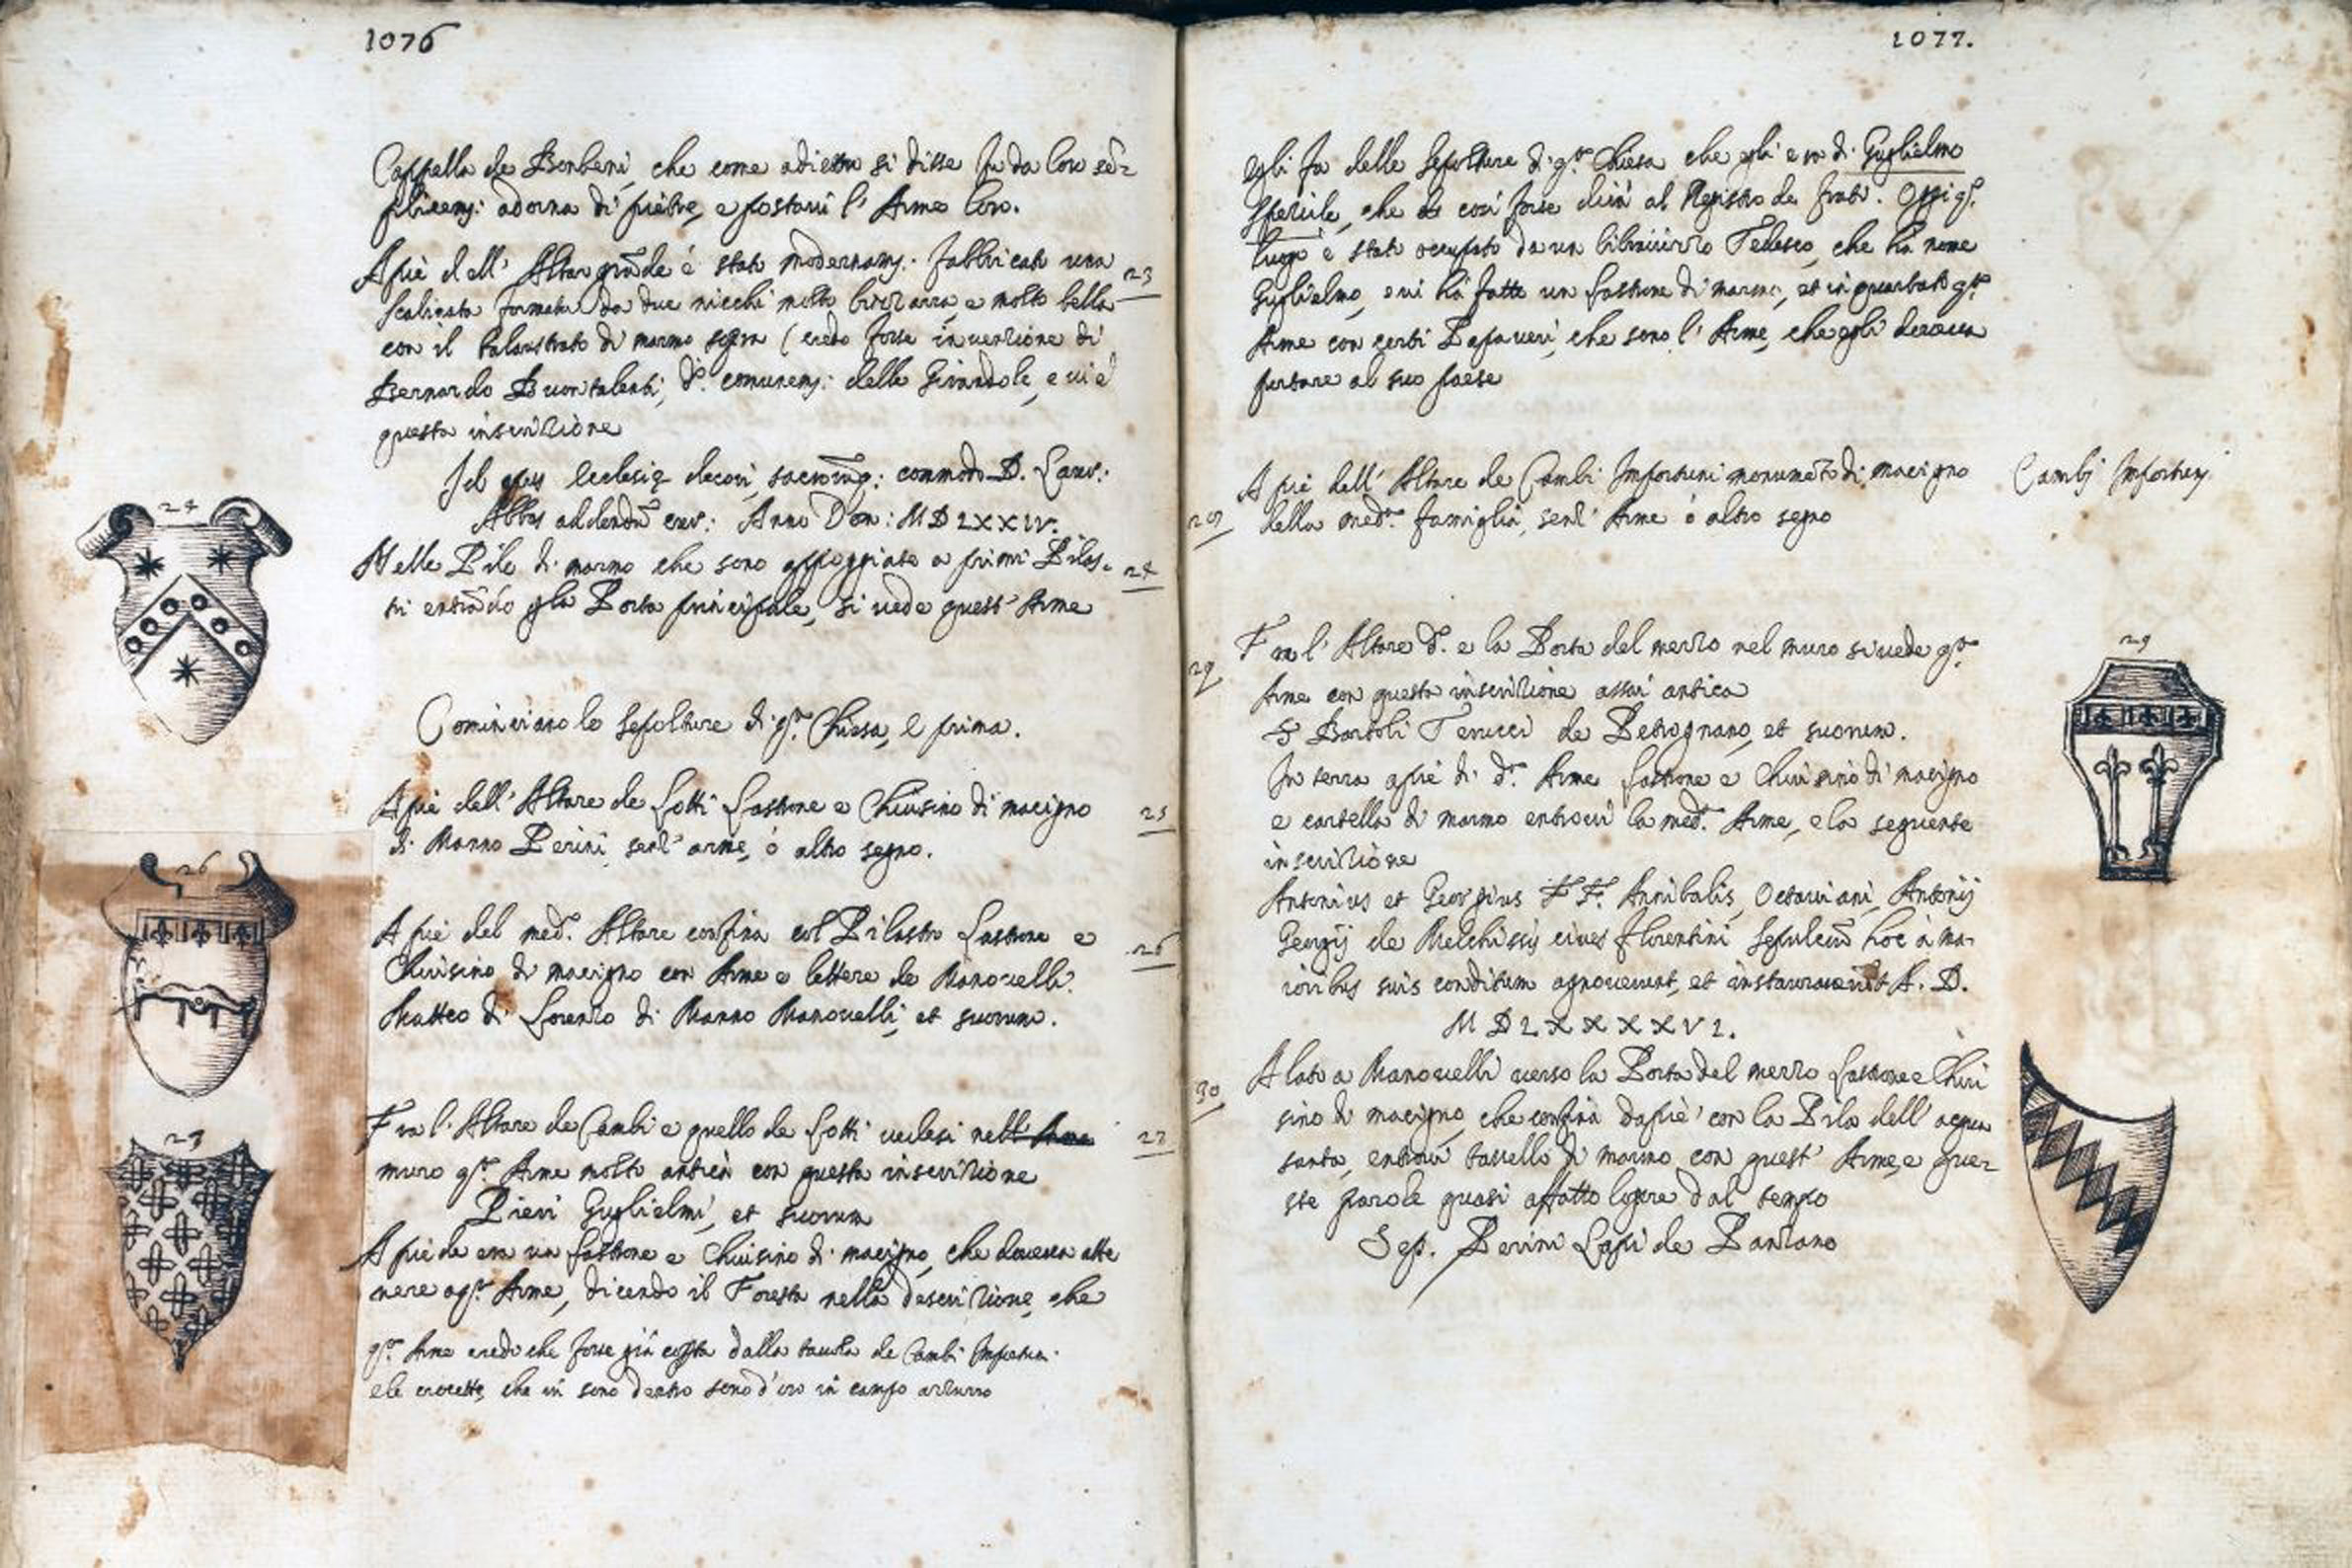 1076
Cappella de Barberi, che come adietro si disse fu da loro se-
plicem: adorna di pietre, e postavi l' Arme loro.
A piè dell' Altar grāde è stata modernam: fabbricata una 23
scalinata formata da due nicchi molto bizzarra, e molto bella
con il balaustrato di marmo sopra (credo forse invenzione di
Bernardo Buontalenti, dº. comunem: delle Girandole, e vi è
questa inscrizione
Id opus Ecclesię decori, sacrorūq: commodo D. Laur:
Abbas addendū cur: Anno Dom: MDLXXIV.
24
Nelle Pile di marmo che sono appoggiate a primi Pilas- 24
tri entrādo p la Porta principale, si vede quest' Arme
Cominciano le sepolture di qª. Chiesa, e prima.
A piè dell' Altare de Lotti Lastrone e Chiusino di macigno 25
di Manno Perini, senz' arme, ò altro segno.
26
A piè del med. Altare confina col Pilastro Lastrone e 26
Chiusino di macigno con Arme e lettere de Manovelli.
Matteo di Lorenzo di Manno Manovelli, et suorum.
27
Fra l' Altare de Cambi e quello de Lotti vedesi nell' Arme 27
muro qª. Arme molto antica con questa inscrizione
Pieri Guglielmi, et suorum
A piè de era un Lastrone e Chiusino di macigno, che doveva atte
nere a qª. Arme, dicendo il Foresta nella descrizione, che
qª. Arme credo che forse già copta dalla tavola de Cambi Importuni
e le crocette, che vi sono dentro sono d'oro in campo azzurro
1077.
egli fa delle sepolture di qª. Chiesa che egli era di Guglielmo
che così forse dirà al Registro de frati. Oggi qº.
luogo è stato occupato da un Tedesco, che ha nome
Guglielmo, e vi hà fatto un lastrone di marmo, et inquartato qª.
Arme con certi Papaveri, che sono l' Arme, che egli doveva
portare al suo paese
A piè dell' Altare de Cambi Importuni monumēto di macigno Cambi Importuni
della medª. famiglia, senz' Arme ò altro segno
29
Fra l' Altare dº. e la Porta del mezzo nel muro si vede qª. 29
Arme con questa inscrizione assai antica
S Bartoli Terucci de Petrognano, et suorum.
In terra a piè di dª. Arme Lastrone e Chiusino di macigno
e cartella di marmo entrovi la med. Arme, e la seguente
inscrizione
Antonius et Georgius FF. Annibalis, Octaviani, Antonij
Georgij de Melchissij cives florentini sepulcrū hoc à ma-
ioribus suis conditum agnoverunt, et instauraverūt A. D.
MDLXXXXVI.
A lato a Manovelli verso la Porta del mezzo Lastrone e Chiu 30
sino di macigno, che confina da piè con la Pila dell' acqua
santa, entrovi tassello di marmo con quest' Arme, e que-
ste parole quasi affatto logore dal tempo
Sep. Perini Lapi de Panzano